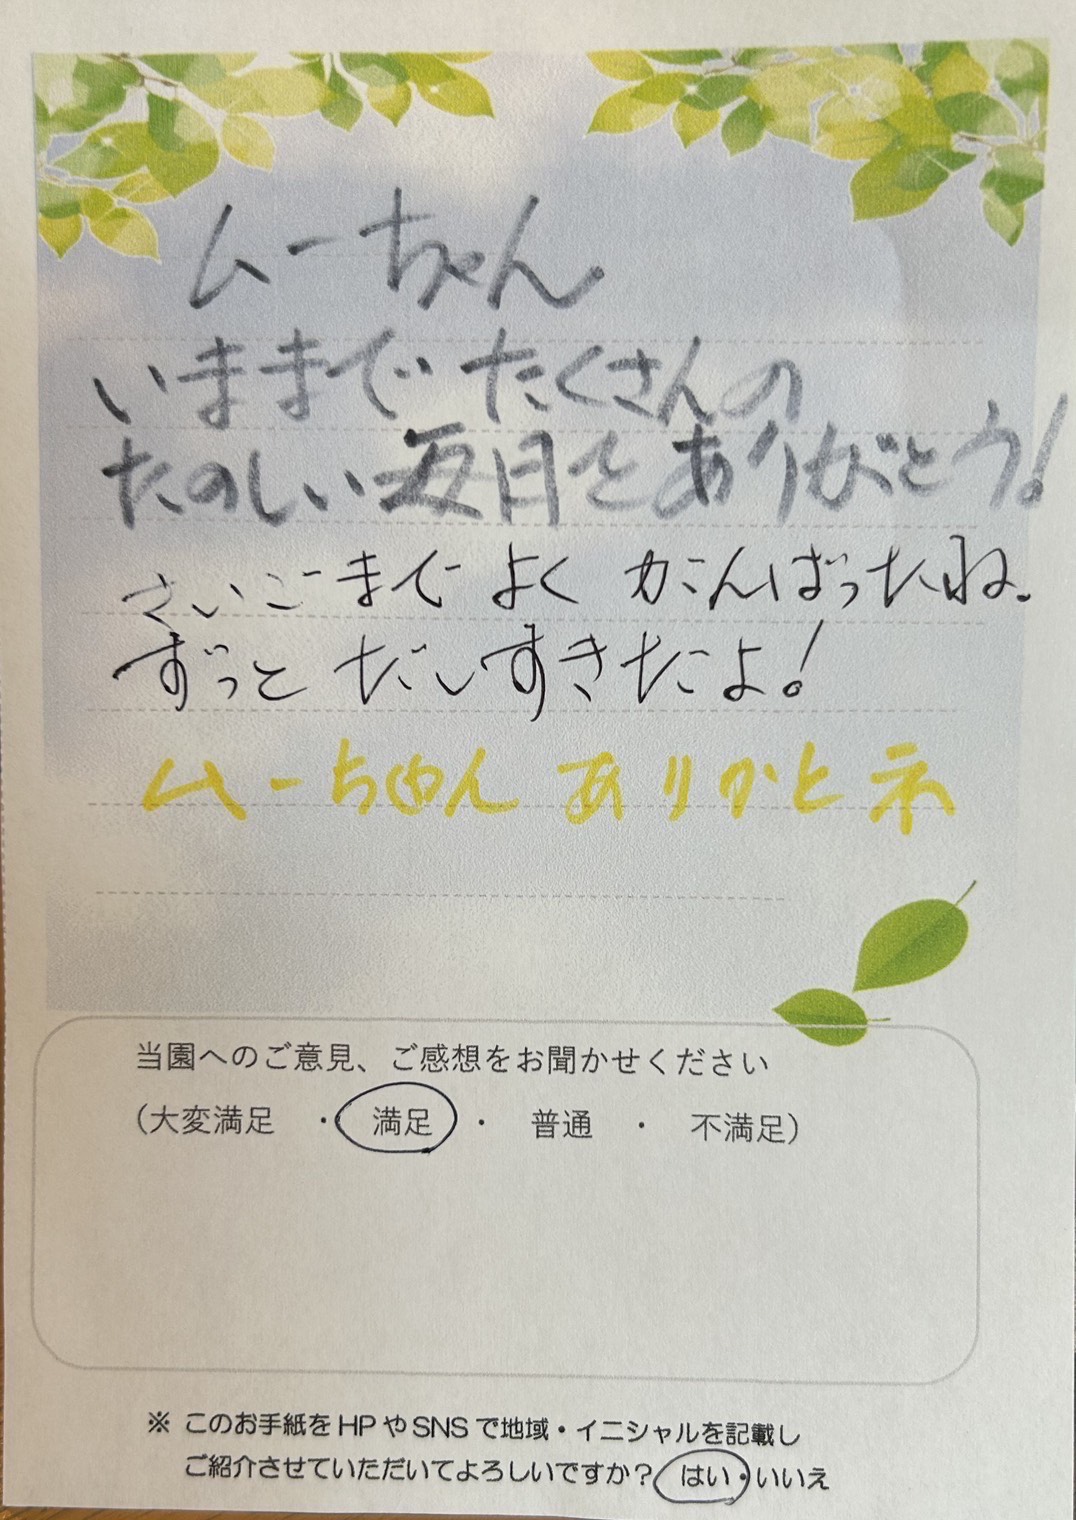 ムーちゃん
いままで たくさんの
たのしい毎日をありがとう!
さいごまで よく がんばったね。
ずっと だいすきだよ!
ムーちゃん ありがとネ
当園へのご意見、ご感想をお聞かせください
(大変満足 ・ 満足 ・ 普通 ・ 不満足)
※ このお手紙をHPやSNSで地域・イニシャルを記載し
ご紹介させていただいてよろしいですか? はい・いいえ